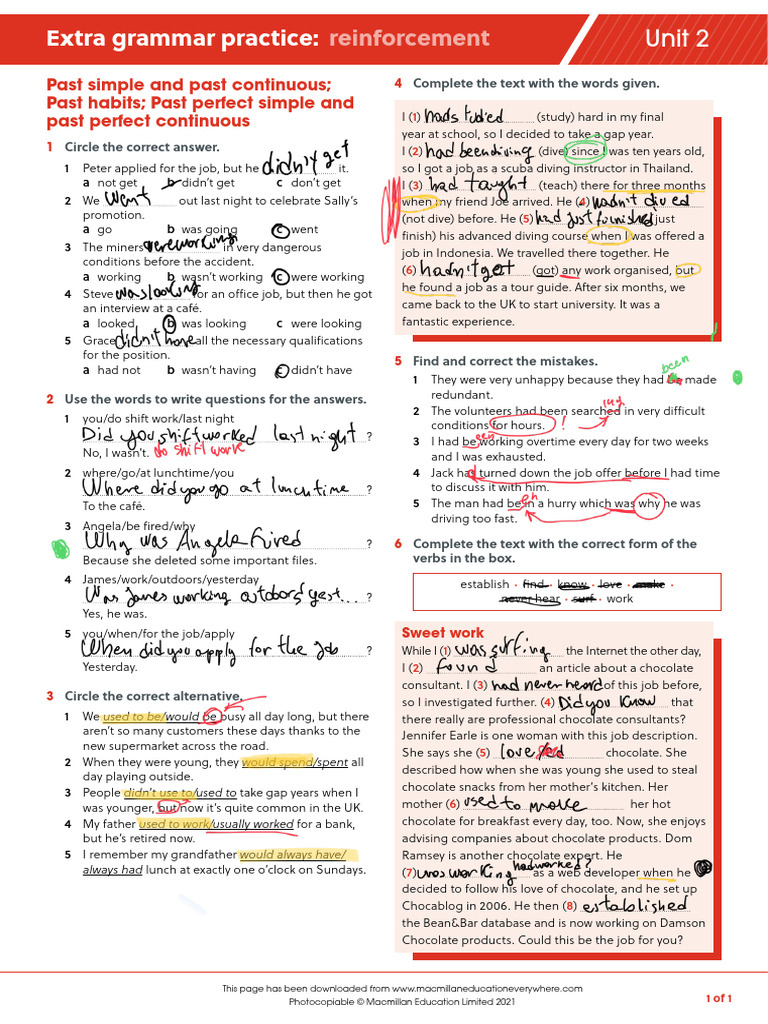 Extra grammar practice: reinforcement
Unit 2
Past simple and past continuous;
Past habits; Past perfect simple and
past perfect continuous
1 Circle the correct answer.
1 Peter applied for the job, but he didn't get it.
a not get b didn't get c don't get
2 We went out last night to celebrate Sally's
promotion.
a go b was going c went
3 The miners were working in very dangerous
conditions before the accident.
a working b wasn't working c were working
4 Steve was looking for an office job, but then he got
an interview at a café.
a looked b was looking c were looking
5 Grace didn't have all the necessary qualifications
for the position.
a had not b wasn't having c didn't have
2 Use the words to write questions for the answers.
1 you/do shift work/last night
Did you shift worked last night ?
No, I wasn't. do shift work
2 where/go/at lunchtime/you
Where did you go at lunchtime ?
To the café.
3 Angela/be fired/why
Why was Angela fired ?
Because she deleted some important files.
4 James/work/outdoors/yesterday
Was James working outdoors yest... ?
Yes, he was.
5 you/when/for the job/apply
When did you apply for the job ?
Yesterday.
3 Circle the correct alternative.
1 We used to be/would be busy all day long, but there
aren't so many customers these days thanks to the
new supermarket across the road.
2 When they were young, they would spend/spent all
day playing outside.
3 People didn't use to/used to take gap years when I
was younger, but now it's quite common in the UK.
4 My father used to work/usually worked for a bank,
but he's retired now.
5 I remember my grandfather would always have/
always had lunch at exactly one o'clock on Sundays.
4 Complete the text with the words given.
I (1) had studied (study) hard in my final
year at school, so I decided to take a gap year.
I (2) had been diving (dive) since I was ten years old,
so I got a job as a scuba diving instructor in Thailand.
I (3) had taught (teach) there for three months
when my friend Joe arrived. He (4) hadn't dived
(not dive) before. He (5) had just furnished (just
finish) his advanced diving course when I was offered a
job in Indonesia. We travelled there together. He
(6) hadn't get (got) any work organised, but
he found a job as a tour guide. After six months, we
came back to the UK to start university. It was a
fantastic experience.
5 Find and correct the mistakes.
been
1 They were very unhappy because they had be made
redundant.
ing
2 The volunteers had been searched in very difficult
conditions for hours. !
3 I had be en working overtime every day for two weeks
and I was exhausted.
4 Jack had turned down the job offer before I had time
to discuss it with him.
en
5 The man had be in a hurry which was why he was
driving too fast.
6 Complete the text with the correct form of the
verbs in the box.
establish · find · know · love · make ·
never hear · surf · work
Sweet work
While I (1) was surfing the Internet the other day,
I (2) found an article about a chocolate
consultant. I (3) had never heard of this job before,
so I investigated further. (4) Did you know that
there really are professional chocolate consultants?
Jennifer Earle is one woman with this job description.
She says she (5) loved chocolate. She
described how when she was young she used to steal
chocolate snacks from her mother's kitchen. Her
mother (6) used to make her hot
chocolate for breakfast every day, too. Now, she enjoys
advising companies about chocolate products. Dom
Ramsey is another chocolate expert. He
had worked?
(7) was working as a web developer when he
decided to follow his love of chocolate, and he set up
Chocablog in 2006. He then (8) established
the Bean&Bar database and is now working on Damson
Chocolate products. Could this be the job for you?
This page has been downloaded from www.macmillaneducationeverywhere.com
Photocopiable © Macmillan Education Limited 2021
1 of 1